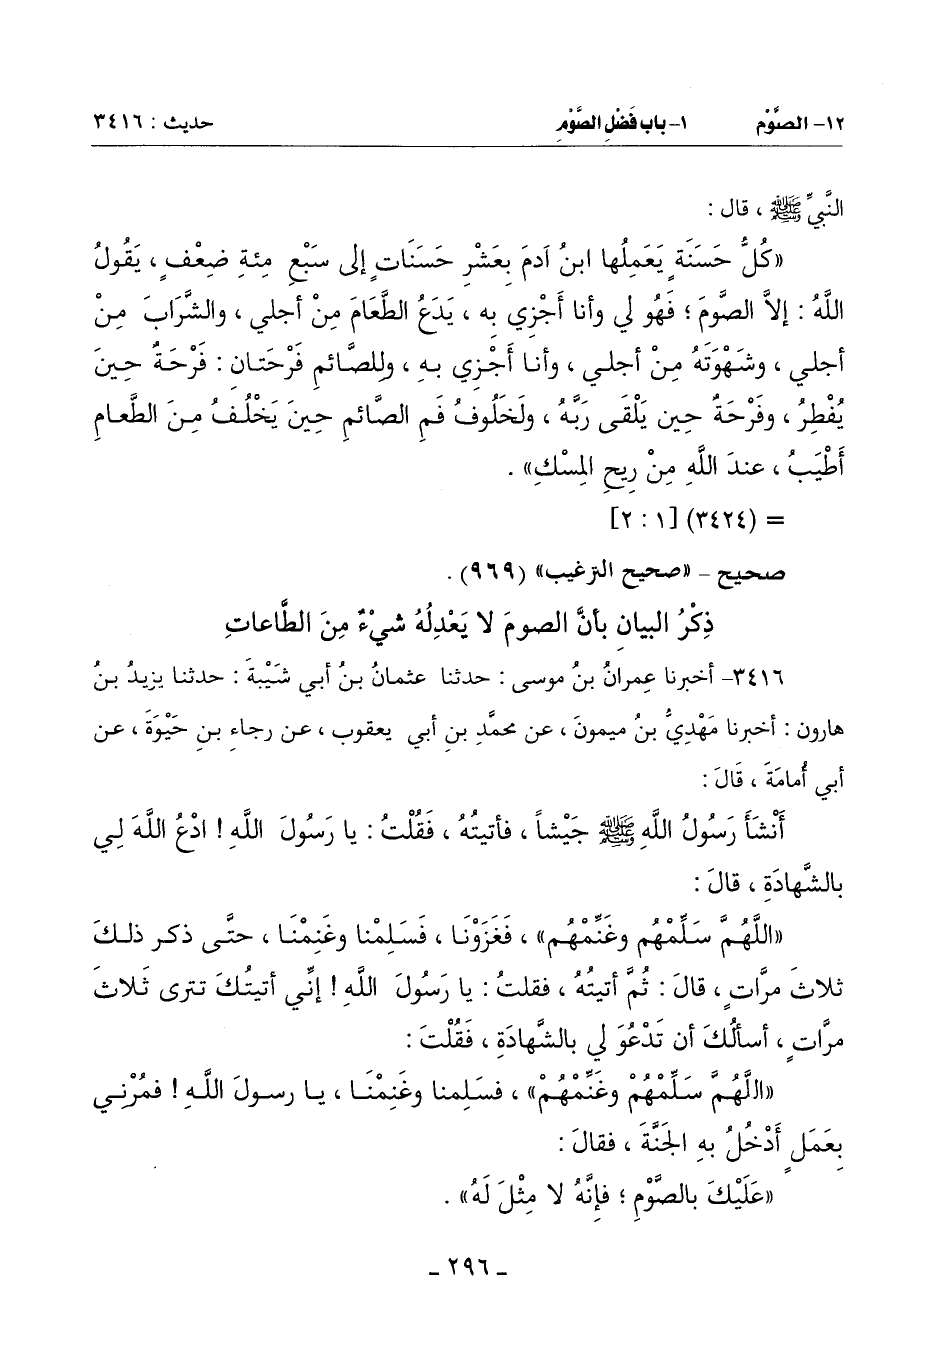 ١٢- الصَّوْم ١- باب فَضْلِ الصَّوْمِ حديث : ٣٤١٦
النَّبيِّ ﷺ ، قال :
«كُلُّ حَسَنَةٍ يَعَمِلُها ابنُ آدمَ بِعَشْرِ حَسَنَاتٍ إلى سَبْعِ مِئةِ ضِعْفٍ ، يَقُولُ
اللَّهُ : إلاَّ الصَّومَ ؛ فَهُو لي وأنا أَجْزِي به ، يَدَعُ الطَّعَامَ مِنْ أجلي ، والشَّرَابَ مِنْ
أجلي ، وشَهْوَتَهُ مِنْ أجلي ، وأنا أَجْزِي بهِ ، وللصَّائمِ فَرْحَتان : فَرْحَةٌ حِينَ
يُفْطِرُ ، وفَرْحَةٌ حِين يَلْقَى رَبَّهُ ، ولَخَلُوفُ فَمِ الصَّائمِ حِينَ يَخْلُفُ مِنَ الطَّعامِ
أَطْيَبُ ، عندَ اللَّهِ مِنْ رِيحِ المِسْكِ» .
= (٣٤٢٤) [١ : ٢]
صحيح – «صحيح الترغيب» (٩٦٩) .
ذِكْرُ البيانِ بأنَّ الصومَ لا يَعْدِلُهُ شيْءٌ مِنَ الطَّاعاتِ
٣٤١٦- أخبرنا عِمرانُ بنُ موسى : حدثنا عثمانُ بنُ أبي شَيْبَةَ : حدثنا يزيدُ بنُ
هارون : أخبرنا مَهْدِيُّ بنُ ميمونَ ، عن محمَّدِ بنِ أبي يعقوب ، عن رجاءِ بنِ حَيْوَةَ ، عن
أبي أُمامَةَ ، قَالَ :
أَنْشَأَ رَسُولُ اللَّهِ ﷺ جَيْشاً ، فأتيتُهُ ، فَقُلْتُ : يا رَسُولَ اللَّهِ ! ادْعُ اللَّهَ لِي
بالشَّهادَةِ ، قالَ :
«اللَّهُمَّ سَلِّمْهُم وغَنِّمْهُم» ، فَغَزَوْنَا ، فَسَلِمْنا وغَنِمْنَا ، حتَّى ذكر ذلكَ
ثلاثَ مرَّاتٍ ، قالَ : ثُمَّ أتيتُهُ ، فقلتُ : يا رَسُولَ اللَّهِ ! إنِّي أتيتُكَ تترى ثَلاثَ
مرَّاتٍ ، أسألُكَ أن تَدْعُوَ لي بالشَّهادَةِ ، فَقُلْتَ :
«اللَّهُمَّ سَلِّمْهُمْ وغَنِّمْهُمْ» ، فسَلِمنا وغَنِمْنَا ، يا رسولَ اللَّهِ ! فمُرْنِي
بعَمَلٍ أَدْخُلُ بهِ الجَنَّةَ ، فقالَ :
«عَلَيْكَ بالصَّوْمِ ؛ فإنَّهُ لا مِثْلَ لَهُ» .
- ٢٩٦ -